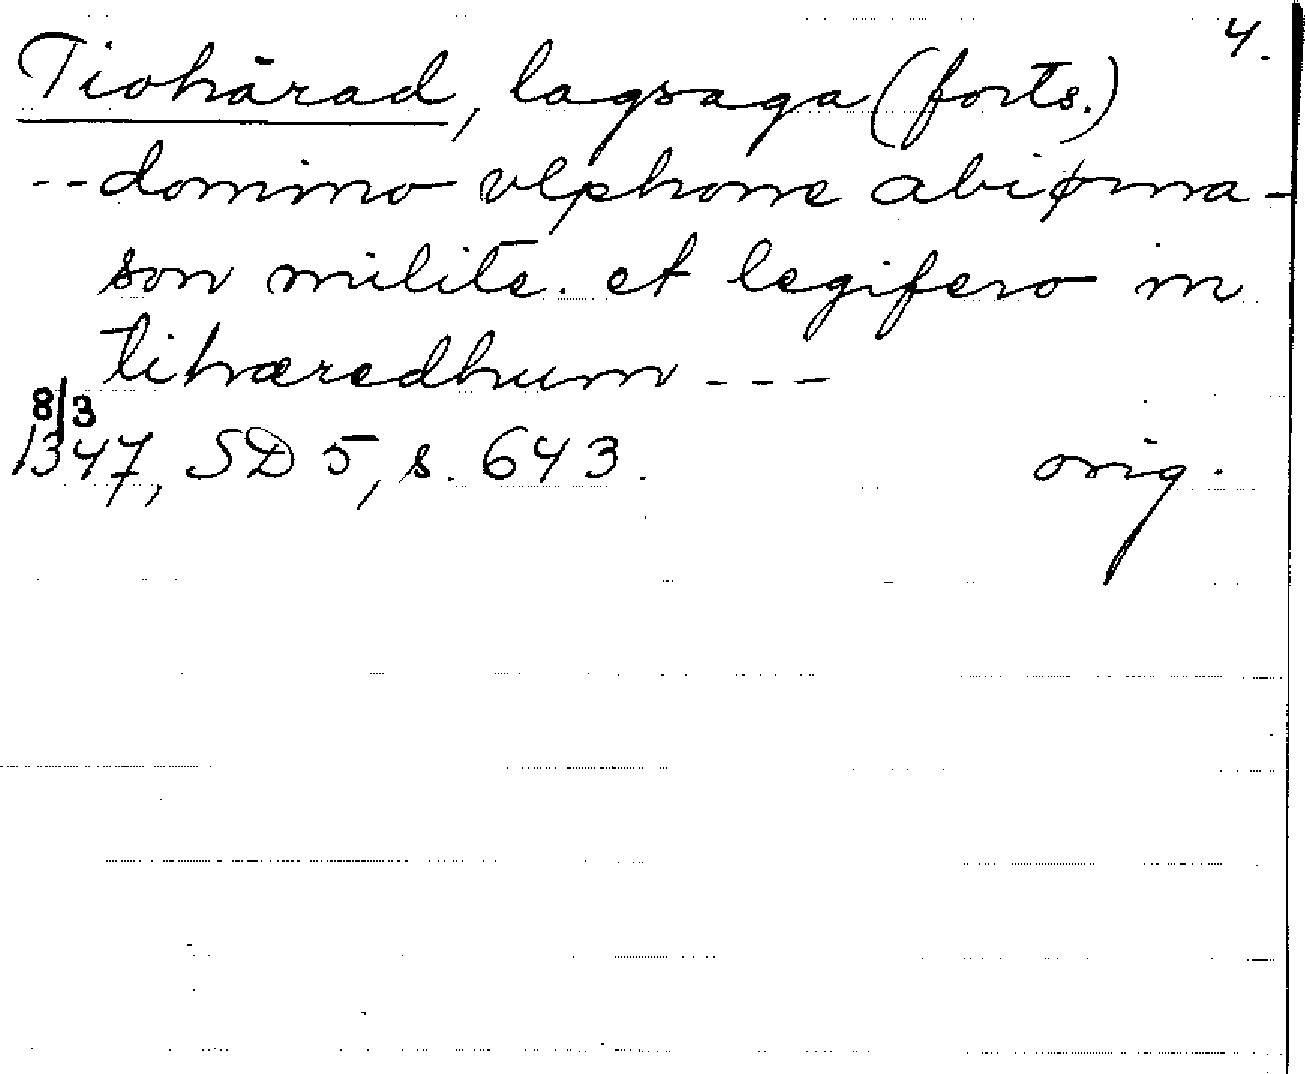 4.
Tiohärad, lagsaga (forts.)
-- domino vlphone abiørna-
son milite. et legifero in
tihæredhum ---
8/3
1347, SD 5, s. 643. orig.